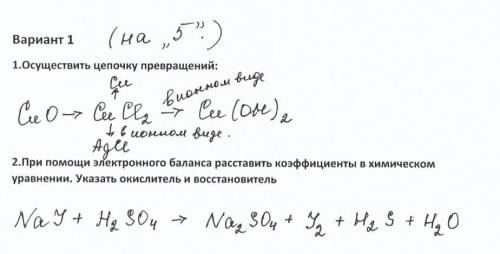 Вариант 1 (на „5”.)
1.Осуществить цепочку превращений:
Cu
↑ в ионном виде
CuO → CuCl2 → Cu(OH)2
↓ в ионном виде.
AgCl
2.При помощи электронного баланса расставить коэффициенты в химическом
уравнении. Указать окислитель и восстановитель
NaJ + H2SO4 → Na2SO4 + J2 + H2S + H2O